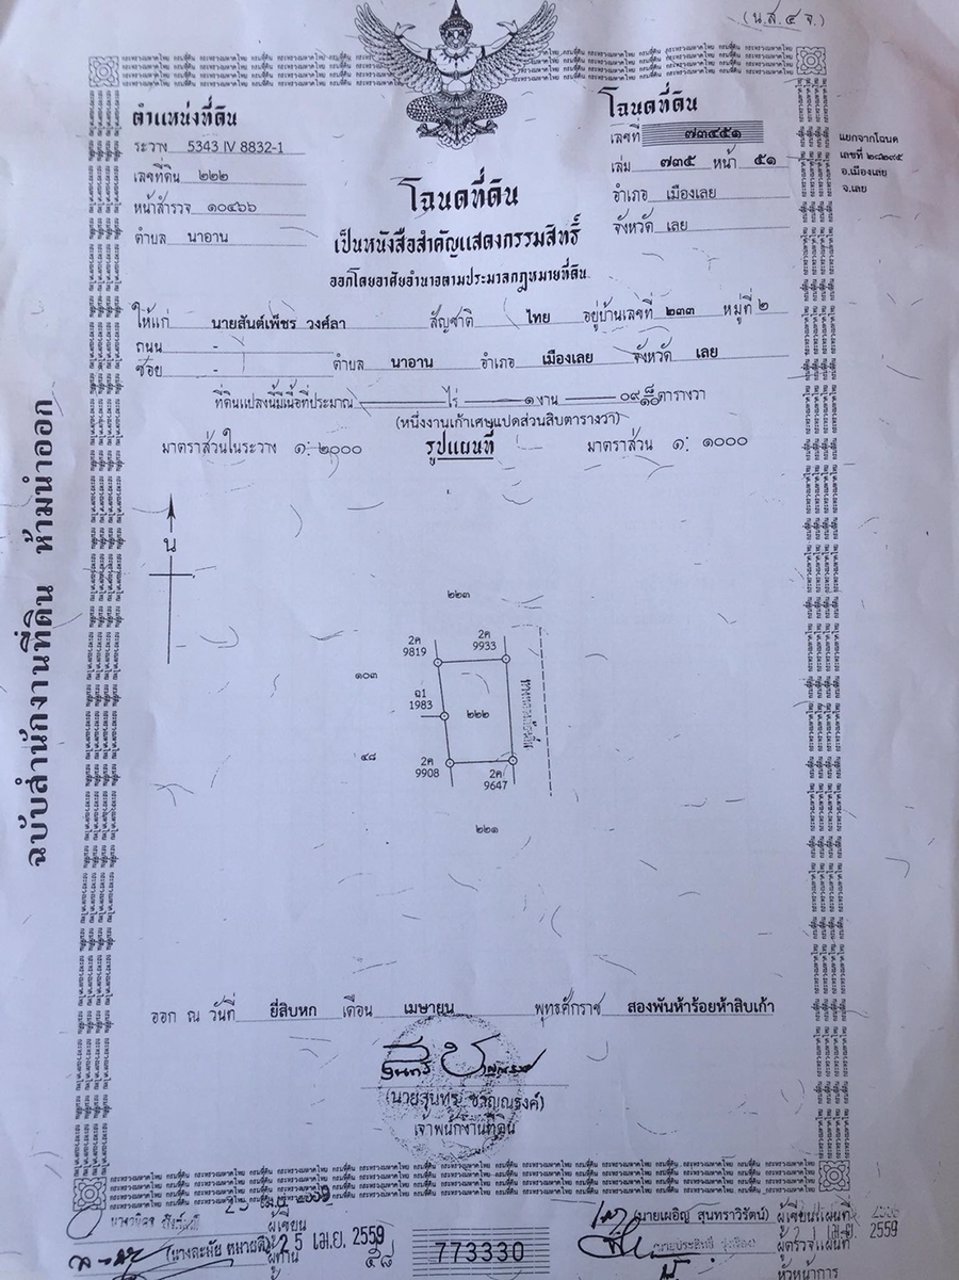 (น.ส.๔ จ.)
ตำแหน่งที่ดิน
ระวาง 5343 IV 8832-1
เลขที่ดิน ๒๒๒
หน้าสำรวจ ๑๐๔๖๖
ตำบล นาอาน
โฉนดที่ดิน
เลขที่ ๗๓๔๕๑
เล่ม ๗๓๕ หน้า ๕๑
อำเภอ เมืองเลย
จังหวัด เลย
แยกจากโฉนด
เลขที่ ๒๘๒๙๕
อ.เมืองเลย
จ.เลย
โฉนดที่ดิน
เป็นหนังสือสำคัญแสดงกรรมสิทธิ์
ออกโดยอาศัยอำนาจตามประมวลกฎหมายที่ดิน
ให้แก่ นายสันต์เพ็ชร วงศ์ลา สัญชาติ ไทย อยู่บ้านเลขที่ ๒๓๓ หมู่ที่ ๒
ถนน -
ซอย - ตำบล นาอาน อำเภอ เมืองเลย จังหวัด เลย
ที่ดินแปลงนี้มีเนื้อที่ประมาณ ไร่ ๑ งาน ๐๙ ๘/๑๐ ตารางวา
(หนึ่งงานเก้าเศษแปดส่วนสิบตารางวา)
มาตราส่วนในระวาง ๑:๒๐๐๐ รูปแผนที่ มาตราส่วน ๑: ๑๐๐๐
น
๒๒๓
2ค 9819
2ค 9933
๑๐๓
ฉ1 1983
๒๒๒
๔๘
2ค 9908
2ค 9647
๒๒๑
ฉบับสำนักงานที่ดิน ห้ามนำออก
ออก ณ วันที่ ยี่สิบหก เดือน เมษายน พุทธศักราช สองพันห้าร้อยห้าสิบเก้า
(นายสุนทร ชาญณรงค์)
เจ้าพนักงานที่ดิน
ผู้เขียน
ผู้ทาน
25 เม.ย. 2559
773330
(นายเผอิญ สุนทราวิรัตน์) ผู้เขียนแผนที่
ผู้ตรวจแผนที่
เม.ย. 2559
หัวหน้าการ